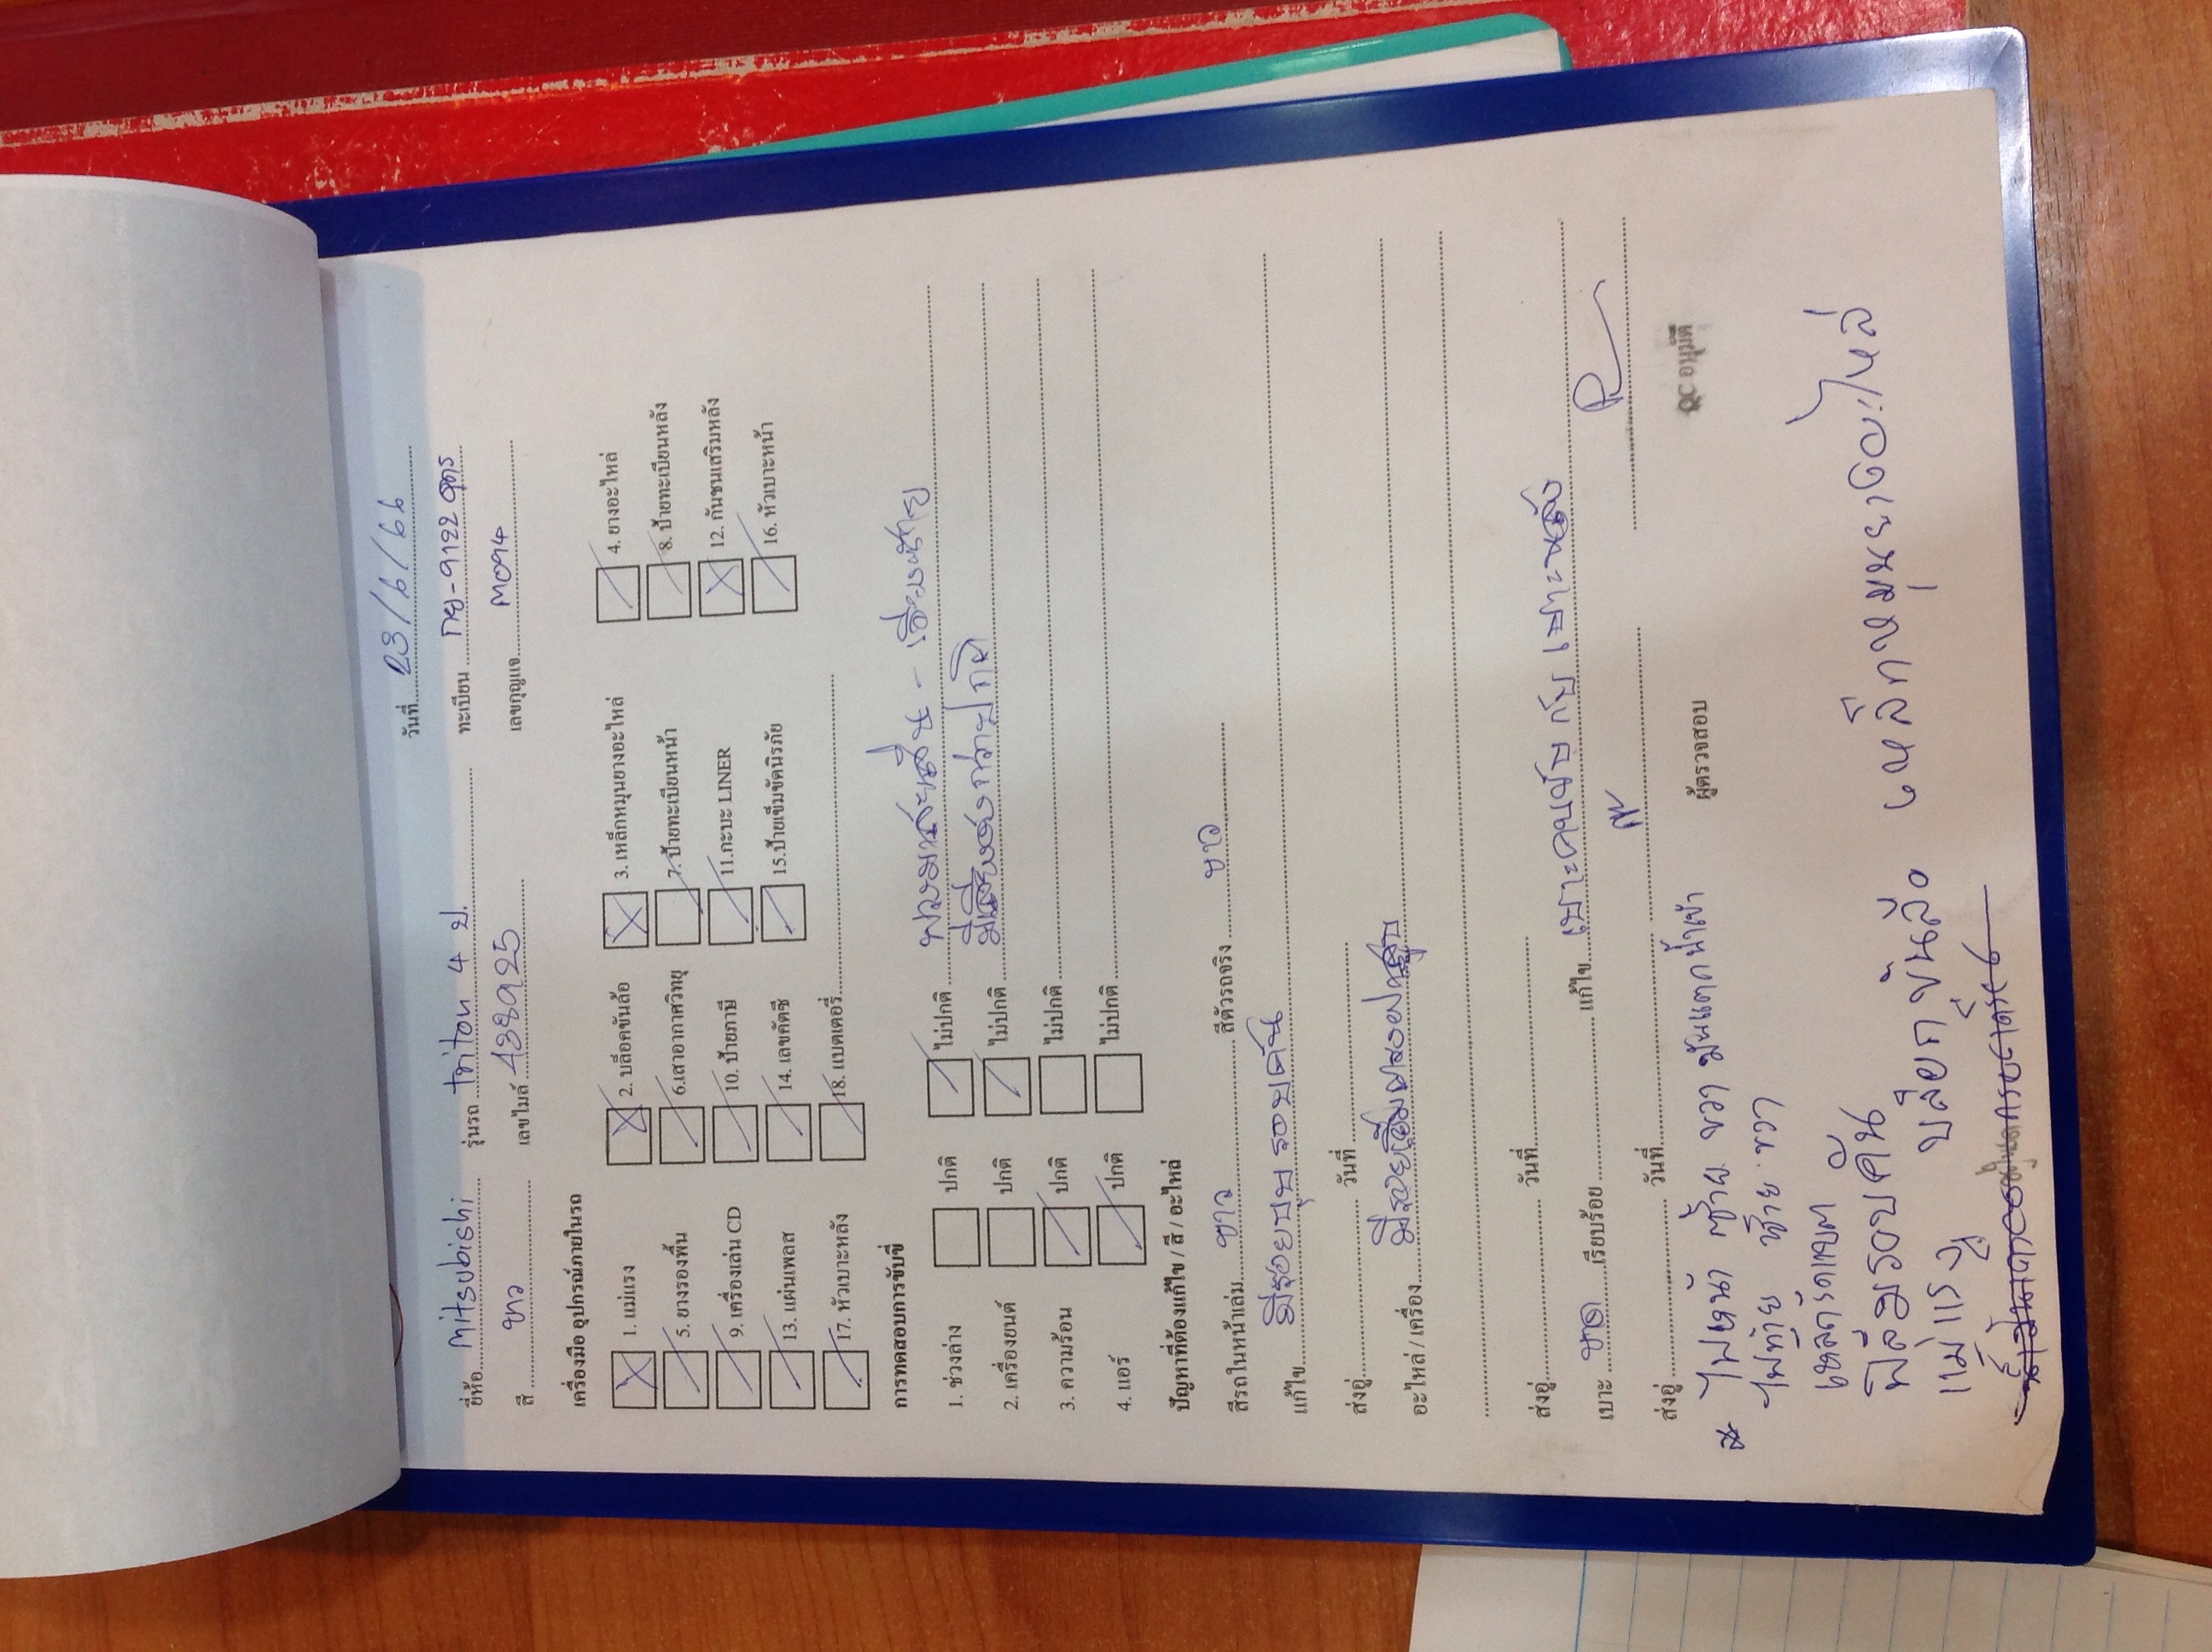 วันที่ 23/6/66
ยี่ห้อ Mitsubishi รุ่นรถ Triton 4 ป. ทะเบียน กย-9122 อุดร
สี ขาว เลขไมล์ 438925 เลขกุญแจ M094
เครื่องมือ อุปกรณ์ภายในรถ
1. แม่แรง 2. บล็อคขันล้อ 3. เหล็กหมุนยางอะไหล่ 4. ยางอะไหล่
5. ยางรองพื้น 6.เสาอากาศวิทยุ 7. ป้ายทะเบียนหน้า 8. ป้ายทะเบียนหลัง
9. เครื่องเล่น CD 10. ป้ายภาษี 11.กะบะ LINER 12. กันชนเสริมหลัง
13. แผ่นเพลส 14. เลขคัตซี 15.ป้ายเข็มขัดนิรภัย 16. หัวเบาะหน้า
17. หัวเบาะหลัง 18. แบตเตอรี่
การทดสอบการขับขี่
1. ช่วงล่าง ปกติ ไม่ปกติ
2. เครื่องยนต์ ปกติ ไม่ปกติ มีเสียงดังกว่าปกติ
3. ความร้อน ปกติ ไม่ปกติ
4. แอร์ ปกติ ไม่ปกติ
ปัญหาที่ต้องแก้ไข / สี / อะไหล่
สีรถในหน้าเล่ม ขาว สีตัวรถจริง ขาว
แก้ไข มีรอยบุบ รอบคัน
ส่งอู่ วันที่
อะไหล่ / เครื่อง
ส่งอู่ วันที่
เบาะ ขาด เรียบร้อย แก้ไข เบาะคนขับ กับ เบาะหลัง
ส่งอู่ วันที่
ผู้ตรวจสอบ QC อนุมัติ
* ไฟหน้า ซ้าย ขวา มันแตกน้ำเข้า
ไฟท้าย ซ้าย ขวา
ฟิล์มรอบคัน
แม่แรง บล็อกขันล้อ เหล็กหมุนยางอะไหล่